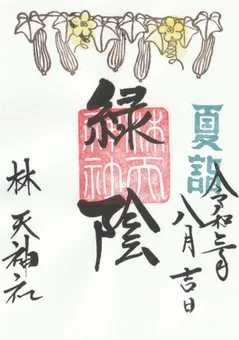 夏詣
令和三年
八月吉日
緑陰
林天神社